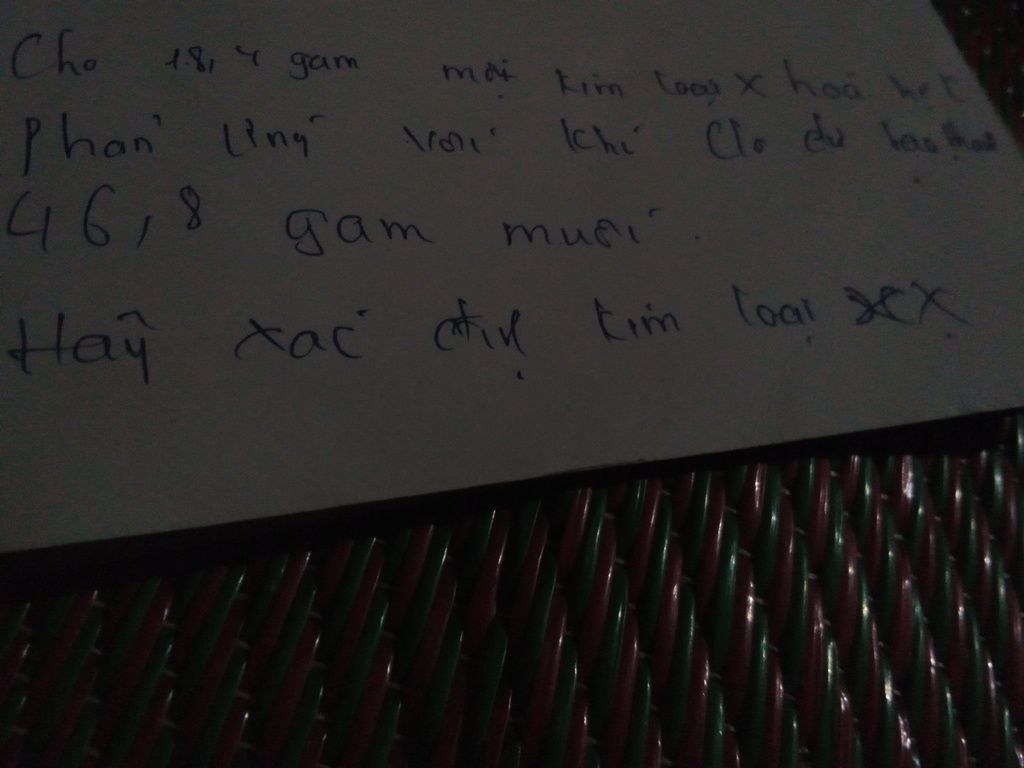 Cho 18,4 gam một kim loại X hoá hết
Phản ứng với khí Clo dư
46,8 gam muối.
Hãy xác định kim loại X